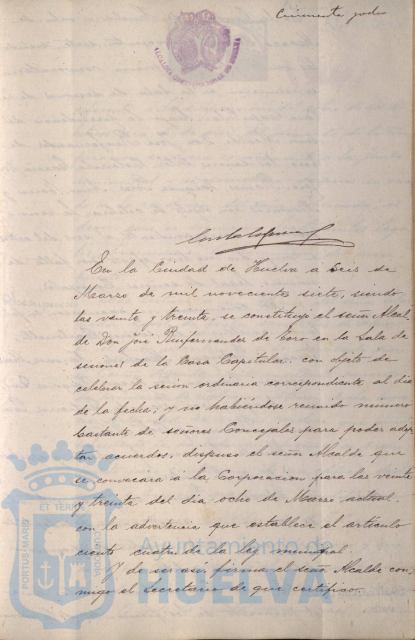 Cincuenta y dos
ALCALDIA CONSTITUCIONAL DE HUELVA
En la Ciudad de Huelva a seis de
Marzo de mil novecientos siete, siendo
las veinte y treinta, se constituyó el señor Alcal-
de Don José de Toro en la Sala de
sesiones de la Casa Capitular con objeto de
celebrar la sesion ordinaria correspondiente al dia
de la fecha, y no habiéndose reunido número
bastante de señores Concejales para poder adop-
tar acuerdos, dispuso el señor Alcalde que
se convocara á la Corporacion para las veinte
y treinta del dia ocho de Marzo actual
con la advertencia que establece el artículo
ciento cuatro de la ley municipal.
Y de ser así, firma el señor Alcalde con-
migo el Secretario de que certifico.
PORTUS MARIS ET TERRAE CUSTODIA
Ayuntamiento de
HUELVA